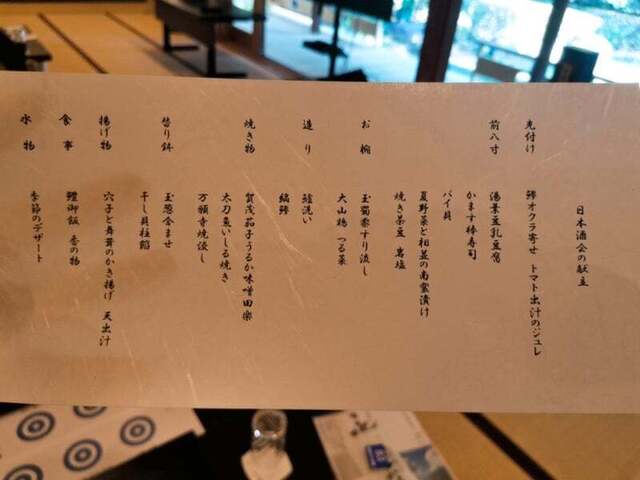 日本酒会の献立
先付け 鱧オクラ寄せ トマト出汁のジュレ
前八寸 湯葉豆乳豆腐
かます棒寿司
バイ貝
夏野菜と相並の南蛮漬け
焼き茶豆 岩塩
お椀 玉蜀黍すり流し
大山鶏 つる菜
造り 鱸洗い
縞鯵
焼き物 賀茂茄子うるか味噌田楽
太刀魚いしる焼き
万願寺焼浸し
替り鉢 玉葱含ませ
干し貝柱餡
揚げ物 穴子と舞茸のかき揚げ 天出汁
食事 鱧御飯 香の物
水物 季節のデザート